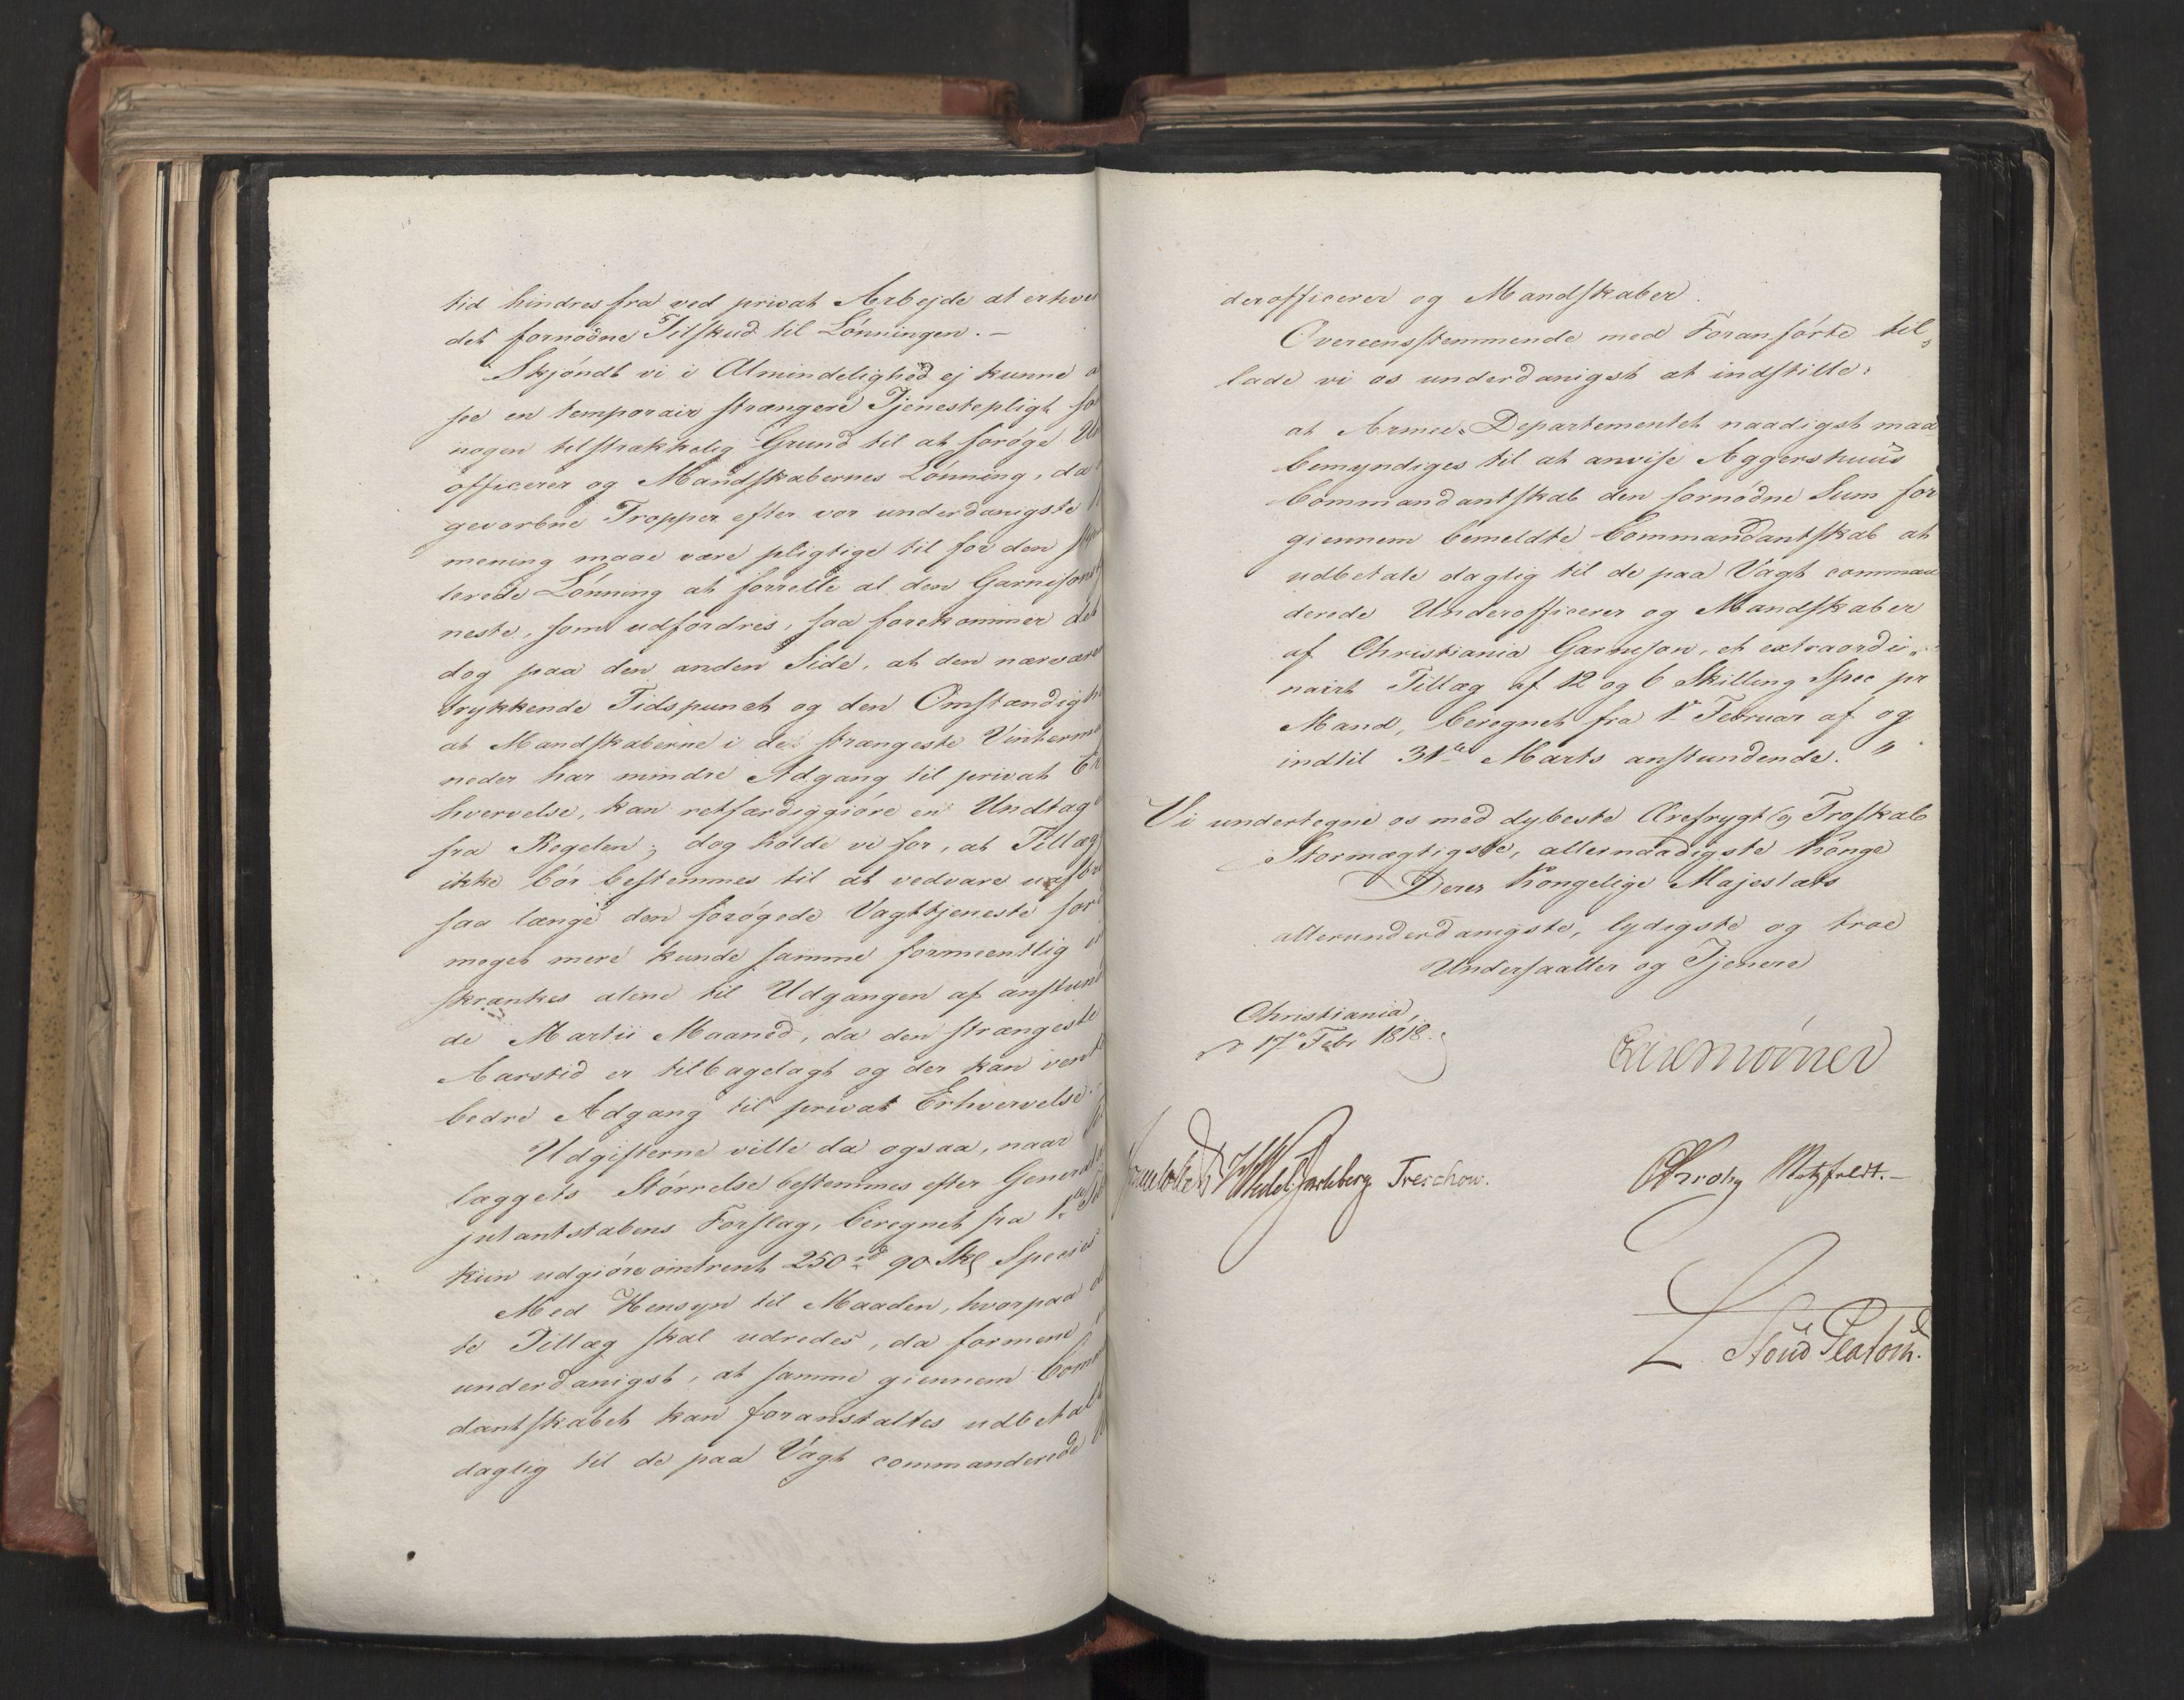 tid hindres fra ved privat Arbejde at erhver
det fornødne Tilskud til Lønningen. –
Skjøndt vi i Almindelighed ej kunne a
see en temporair strængere Tjenestepligt for
nogen tilstrækkelig Grund til at forøge Un
officerer og Mandskabernes Lønning, da
gevorbne Tropper efter vor underdanigste
mening maae være pligtige til for den
lerede Lønning at forrette al den Garnisons
neste, som udfordres, saa forekommer det
dog paa den anden Side, at den nærvære
trykkende Tidspunct og den Omstændigh
at Mandskaberne i de strængeste Vinterma
neder har mindre Adgang til privat Er
hvervelse, kan retfærdiggiøre en Undtag
fra Regelen; dog holde vi for, at Tillæg
ikke bør bestemmes til at vedvare uafbr
saa længe den forøgede Vagttjeneste for
meget mere kunde samme formeentlig
skrænkes alene til Udgangen af anstund
de Martii Maaned, da den strængeste
Aarstid er tilbagelagt og der kan vent
bedre Adgang til privat Erhvervelse.
Udgifterne ville da ogsaa, naar
læggets Størrelse bestemmes efter General
jutantstabens Forslag, beregnet fra 1
kun udgiøre omtrent 250 rd 90 Sk Species
Med Hensyn til Maaden, hvorpaa
te Tillæg skal udredes, da formene
underdanigst, at samme giennem Com
dantskabet kan foranstaltes udbetalt
daglig til de paa Vagt commanderede
derofficerer og Mandskaber.
Overeensstemmende med Foranførte til„
lade vi os underdanigst at indstille:
at Armee-Departementet naadigst maa
bemyndiges til at anvise Aggershuus
Commandantskab den fornødne Sum for
giennem bemeldte Commandantskab at
udbetale daglig til de paa Vagt comman
derede Underofficerer og Mandskaber
af Christiania Garnison, et extraordi„
nairt Tillæg af 12 og 6 Skilling Spec pr
Mand, beregnet fra 1 Februar af og
indtil 31te Marts anstundende. "
Vi undertegne os med dybeste Ærefrygt og Troskab
Stormægtigste, allernaadigste Konge
Deres Kongelige Majestæts
allerunderdanigste, lydigste og troe
Undersaatter og Tjenere
Christiania,
d 17 Febr 1818.
Mörner
Wedel Jarlsberg Treschow.
CKrohg Motzfeldt. –
L Stoud Platou